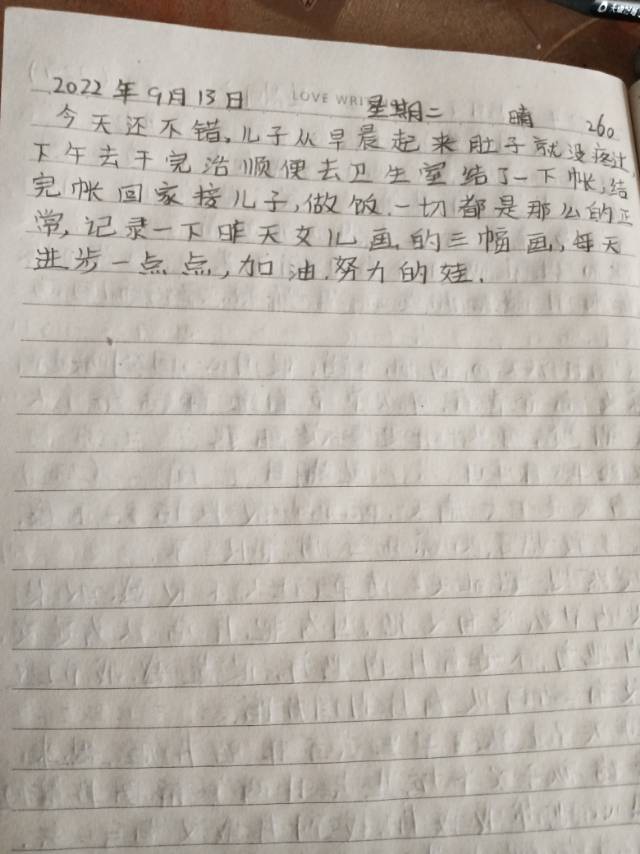 2022年9月13日 LOVE WRI 星期二 晴 260
今天还不错,儿子从早晨起来肚子就没疼过,
下午去干完活顺便去卫生室结了一下帐,结
完帐回家接儿子,做饭.一切都是那么的正
常,记录一下昨天女儿画的三幅画,每天
进步一点点,加油.努力的娃.